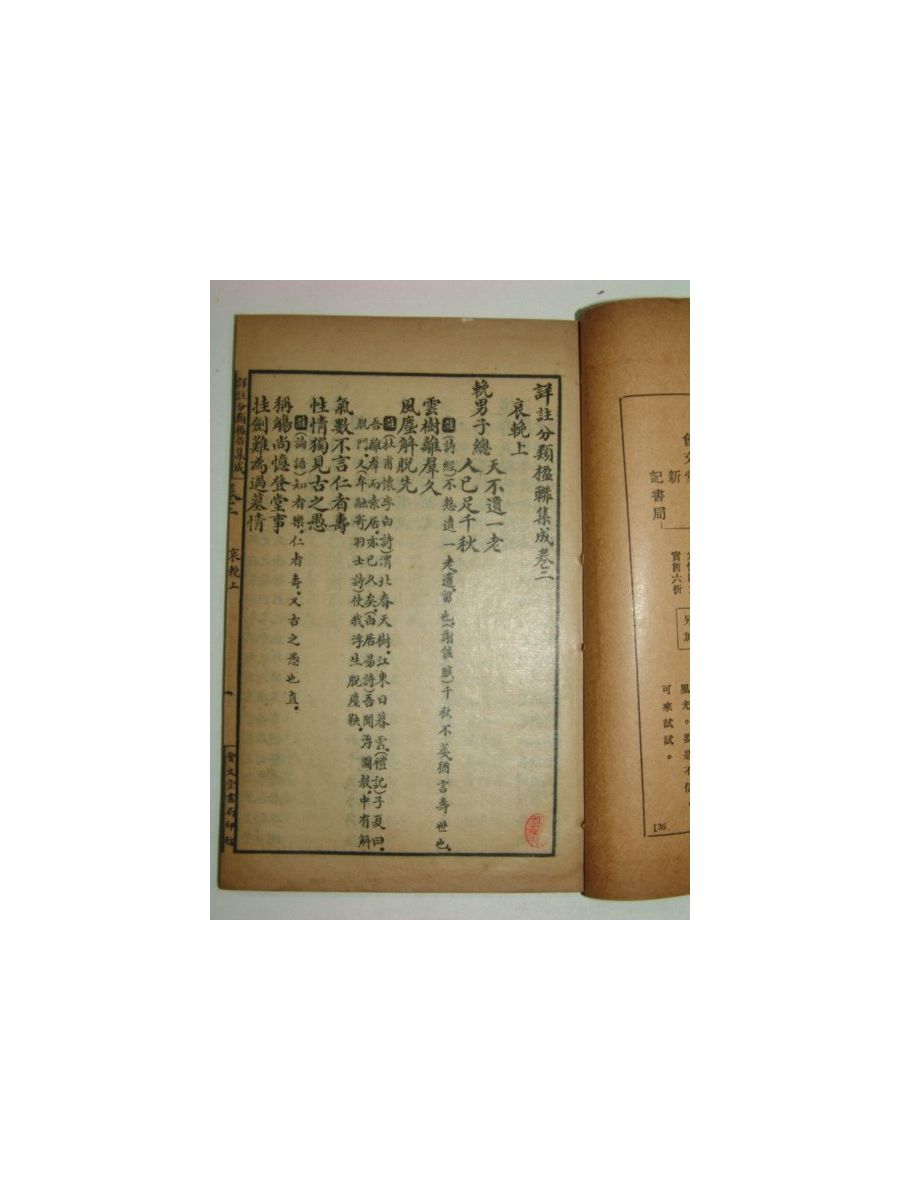 詳註分類楹聯集成卷三
哀輓上
輓男子總
天不遺一老
人已足千秋
註(詩經)不憖遺一老。遺留也。(謝朓賦)千秋不萎。猶言壽世也。
雲樹離羣久
風塵解脫先
註(杜甫懷李白詩)渭北春天樹。江東日暮雲。(禮記)子夏曰。
吾離羣而索居。亦已久矣。(白居易詩)吾聞浮圖教。中有解
脫門。又(牟融寄羽士詩)使我浮生脫塵鞅。
氣數不言仁者壽
性情獨見古之愚
註(論語)知者樂。仁者壽。又古之愚也直。
稱觴尚憶登堂事
挂劍難為過墓情
詳註分類楹聯集成 卷三
哀輓上
一
會文堂書局印行
新
記書局
實售六折
可來試試。
[36